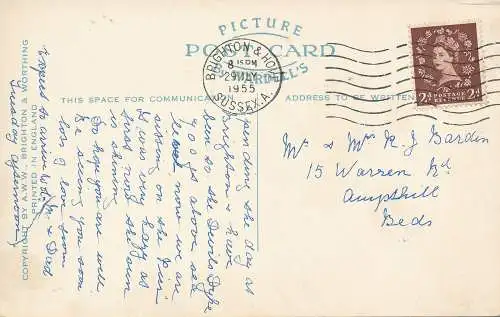 PICTURE
POST CARD
BRIGHTON & HOVE
8 15 PM
29 JLY
1955
SUSSEX. A.
POSTAGE
REVENUE
2D 2D
THIS SPACE FOR COMMUNICATION
ADDRESS TO BE WRITTEN
Mr & Mrs R. J. Gardin
15 Warren Rd
Ampthill
Beds
Spending the day at
Brighton & have
been to the Devils Dyke
700 ft above sea
level, now we are
sitting on the Pier
it was very hazy at
first now the sun
is shining
Do hope you are well
be seeing you soon
lots of love from
Mum & Dad
expect to arrive
Tuesday afternoon
COPYRIGHT BY A.W.W. BRIGHTON & WORTHING
PRINTED IN ENGLAND